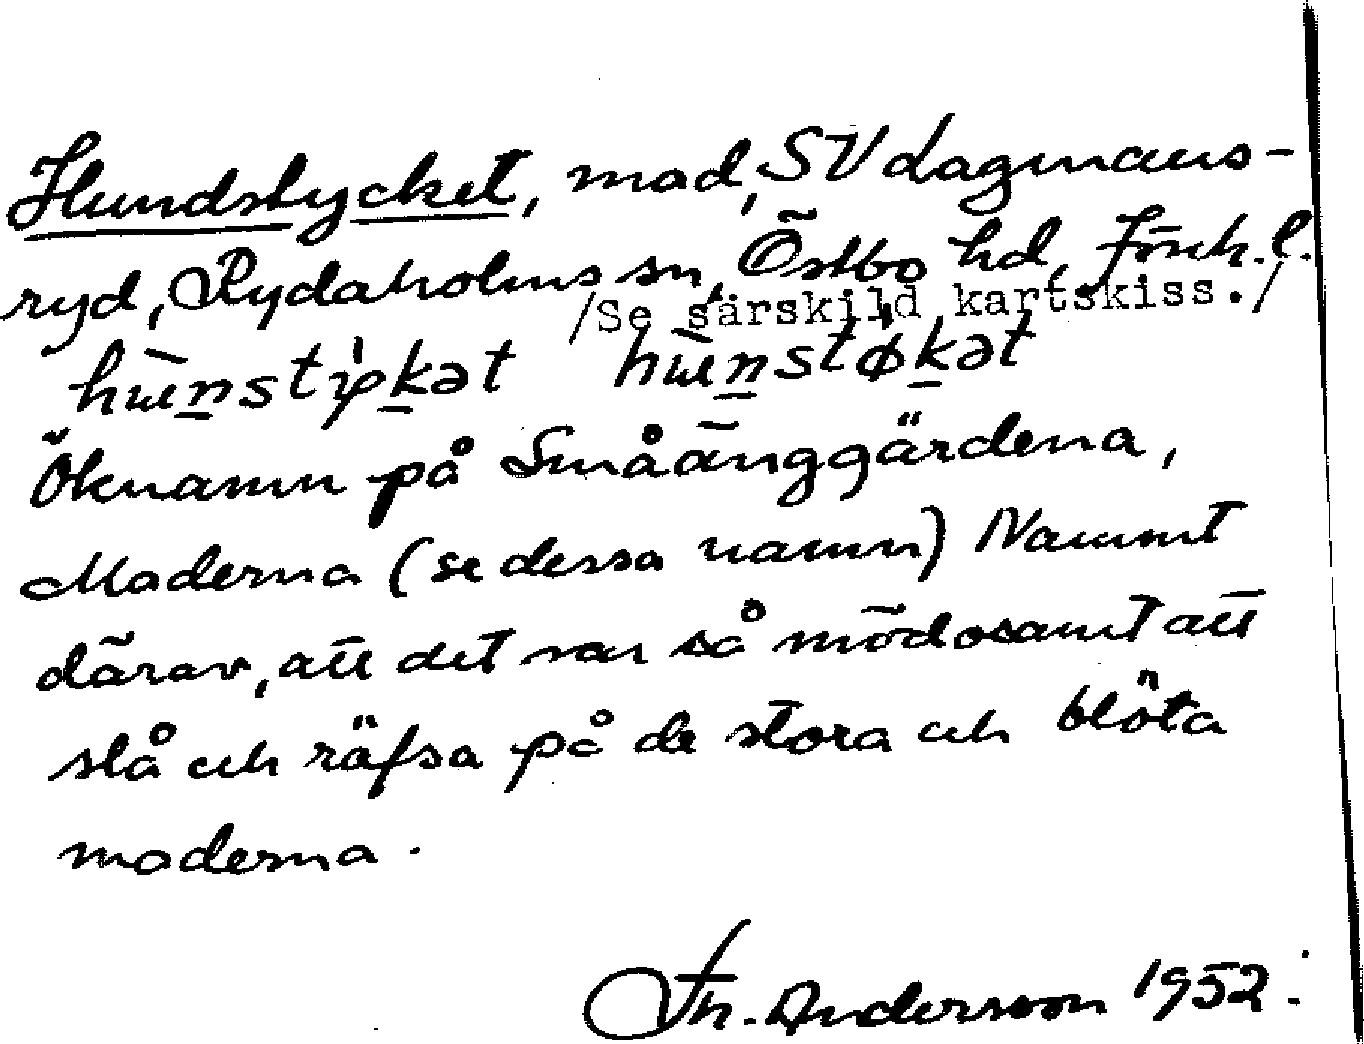 Hundstycket, mad, SV Lagmans-
ryd, Rydaholms sn, Östbo hd, Jönk. l.
/Se särskild kartskiss./
hɯ̀nstỳkət hɯ̀nstø̀kət
Öknamn på Småänggärdena,
Maderna (se dessa namn) Namnet
därav, att det var så mödosamt att
slå och räfsa på de stora och blöta
maderna.
Th. Andersson 1952.